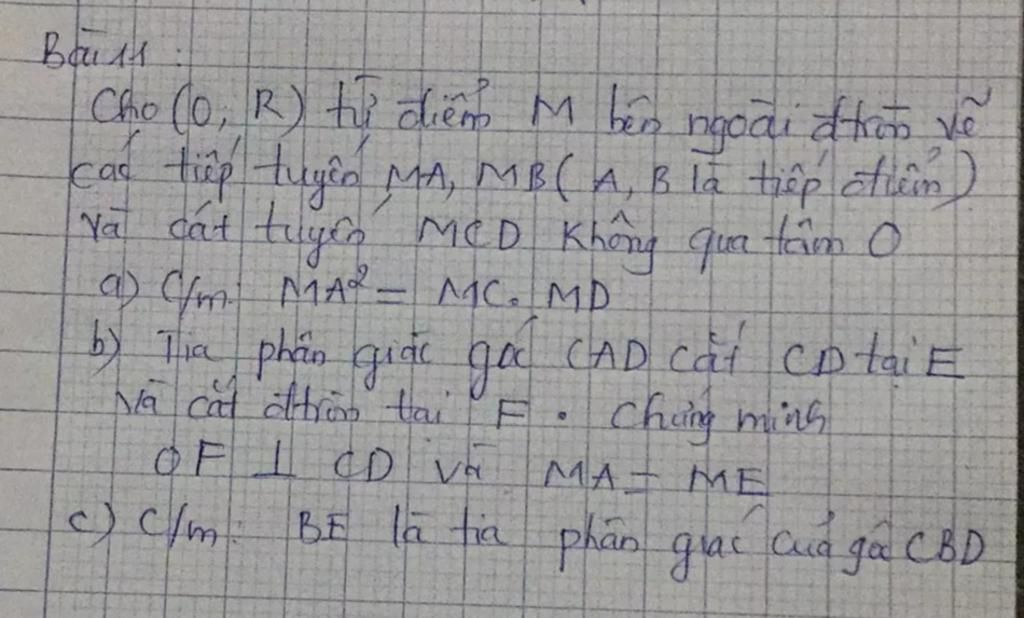 Bài 11 :
Cho (O, R) từ điểm M bên ngoài đtròn vẽ
các tiếp tuyến MA, MB ( A, B là tiếp điểm )
và cát tuyến MCD không qua tâm O
a) C/m: MA² = MC. MD
b) Tia phân giác góc CAD cắt CD tại E
và cắt đtròn tại F . Chứng minh
OF ⊥ CD và MA = ME
c) C/m: BE là tia phân giác của góc CBD